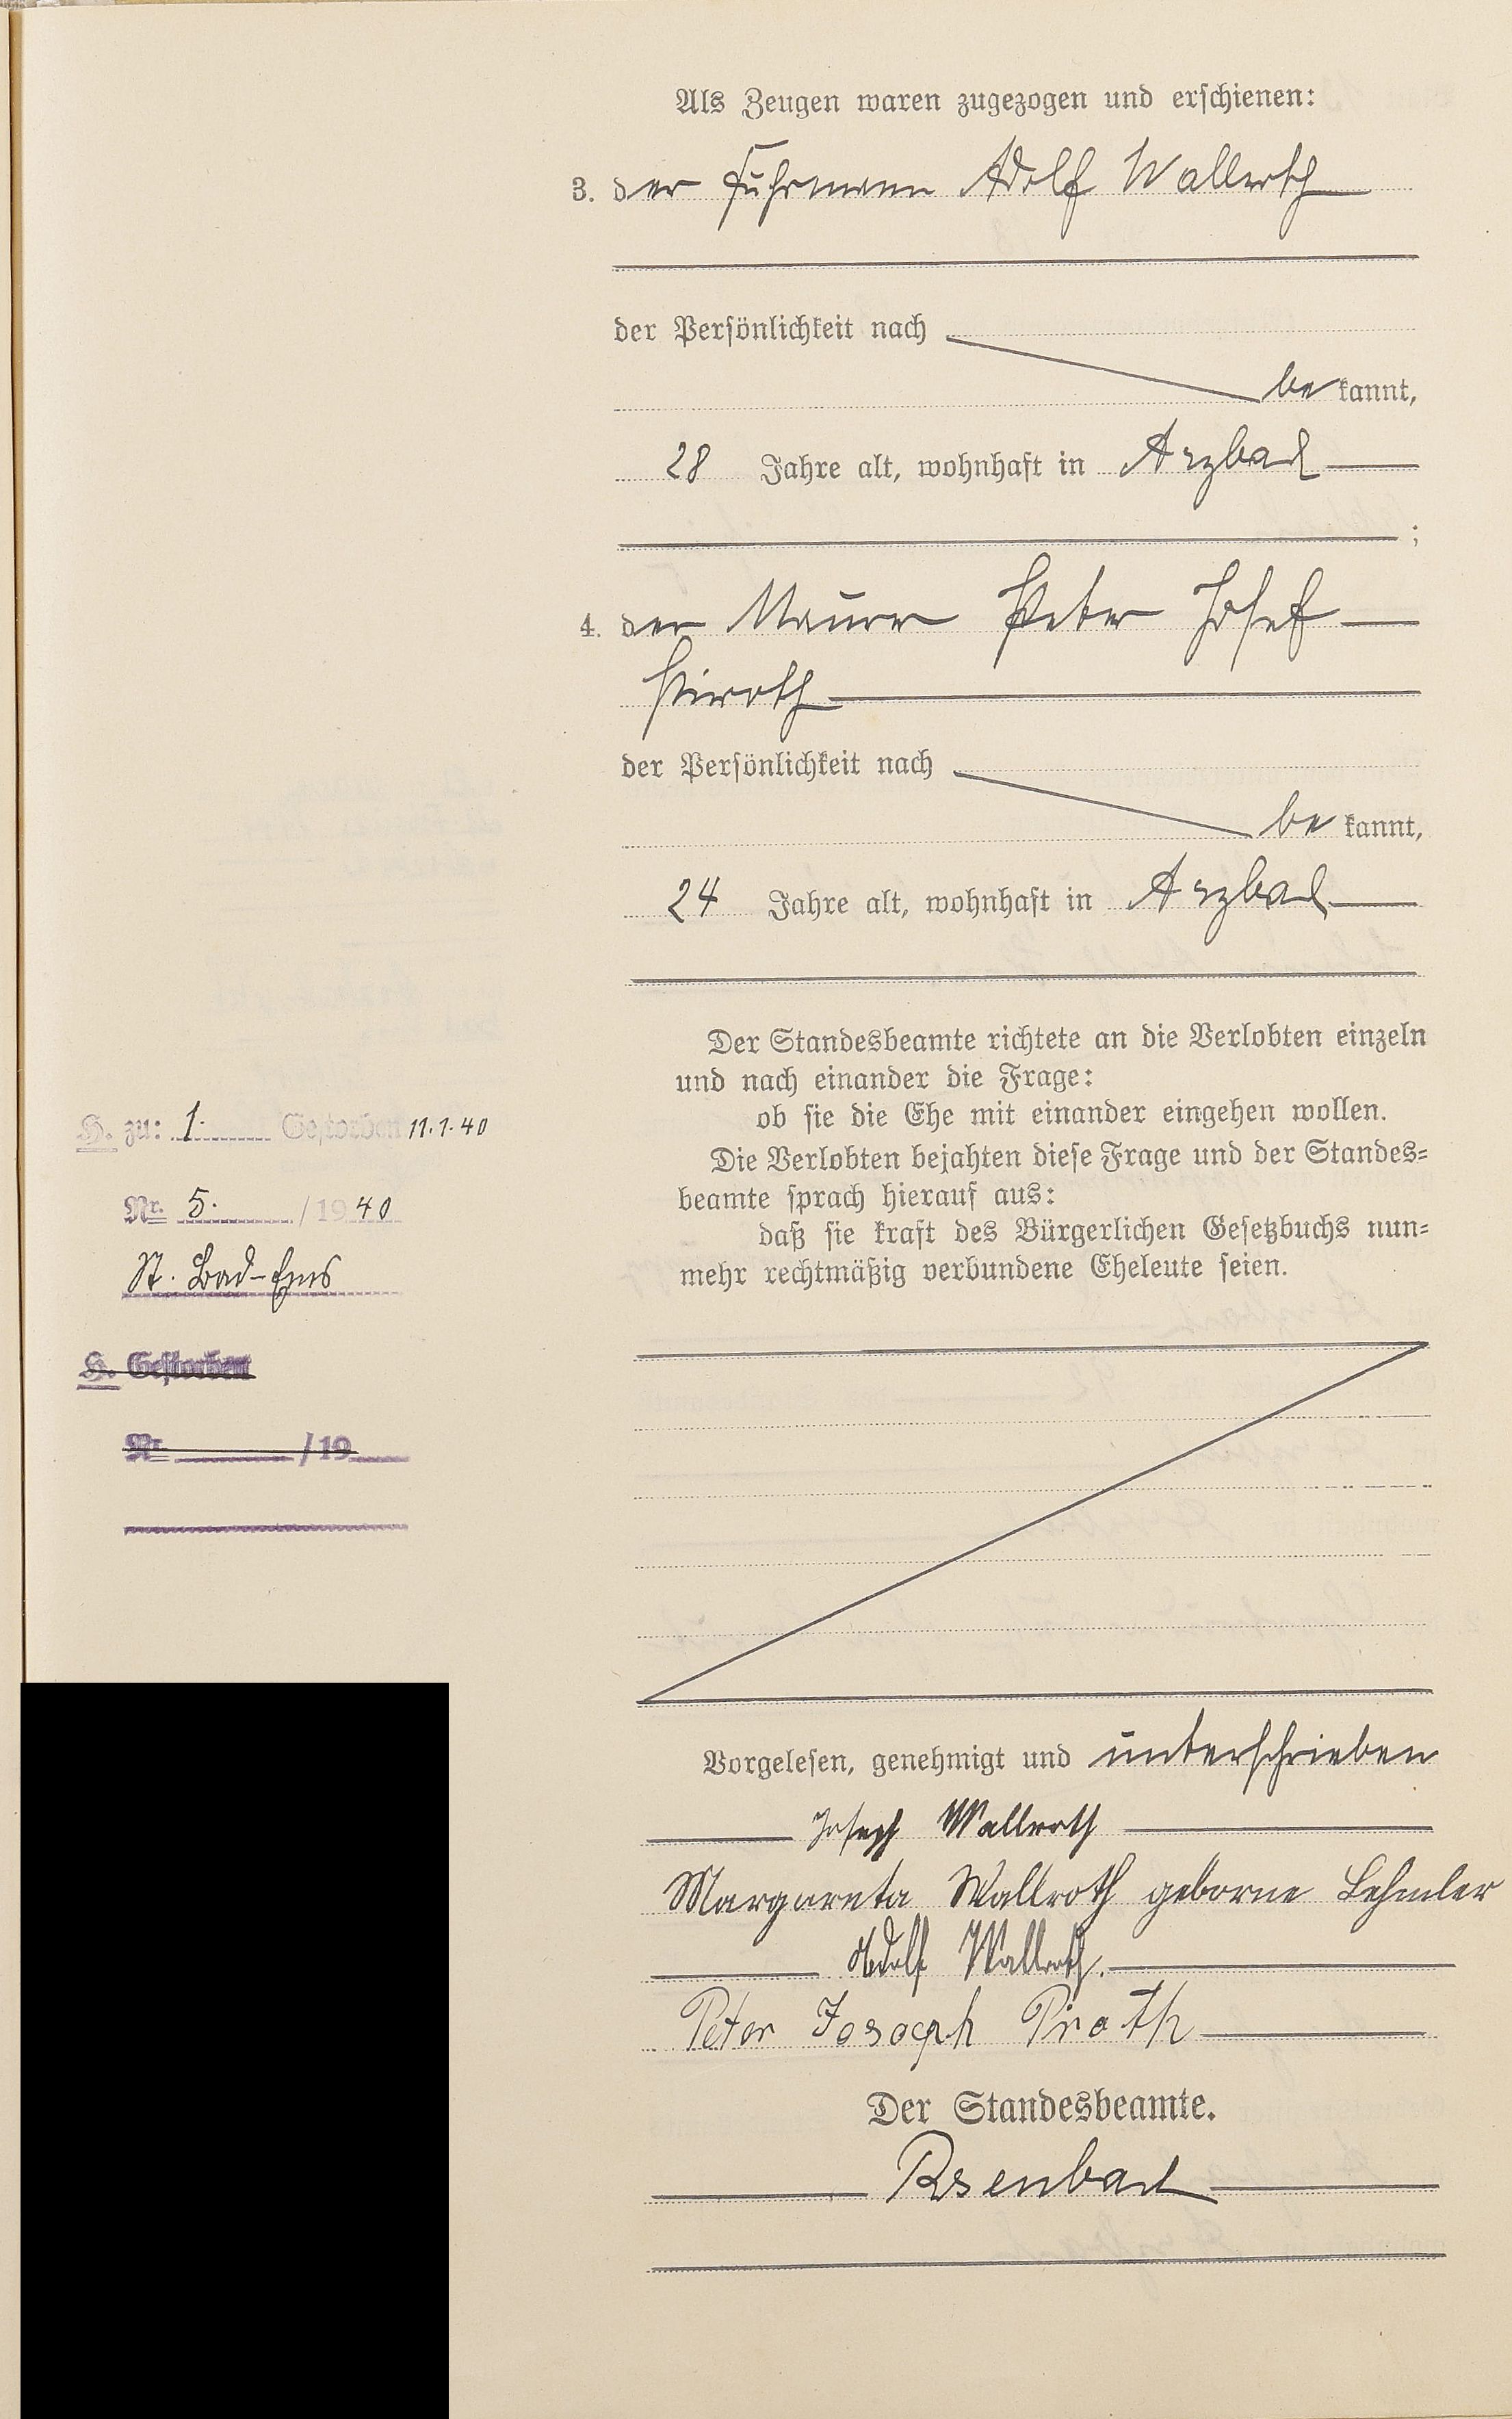 Als Zeugen waren zugezogen und erschienen:
3. der Fuhrmann Adolf Wallroth
der Persönlichkeit nach
be kannt,
28 Jahre alt, wohnhaft in Arzbach
;
4. der Maurer Peter Josef
Piroth
der Persönlichkeit nach
be kannt,
24 Jahre alt, wohnhaft in Arzbach
Der Standesbeamte richtete an die Verlobten einzeln
und nach einander die Frage:
ob sie die Ehe mit einander eingehen wollen.
Die Verlobten bejahten diese Frage und der Standes=
beamte sprach hierauf aus:
daß sie kraft des Bürgerlichen Gesetzbuchs nun=
mehr rechtmäßig verbundene Eheleute seien.
H. zu: 1. Gestorben 11.1.40
Nr. 5. /1940
St. Bad-Ems
H. Gestorben
Nr. /19
Vorgelesen, genehmigt und unterschrieben
Joseph Wallroth
Margareta Wallroth geborne Lehmler
Adolf Wallroth.
Peter Josoeph Piroth
Der Standesbeamte.